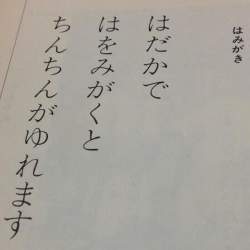 はみがき
はだかで
はをみがくと
ちんちんがゆれます